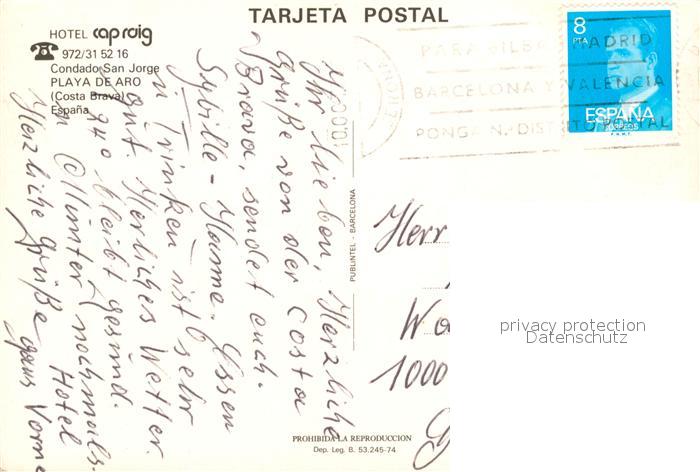 TARJETA POSTAL
HOTEL cap roig
☎ 972/31 52 16
Condado San Jorge
PLAYA DE ARO
(Costa Brava)
España
Ihr Lieben, Herzliche
Grüße von der Costa
Brava, sendet euch.
Sybille - Hanne. Essen
u Trinken ist sehr
gut. Herliches Wetter.
bleibt gesund.
Winter nochmals.
Hotel
Herzliche Grüße
ganz Vorne
10.00
PARA BILBAO MADRID
BARCELONA Y VALENCIA
PONGA N.º DISTRITO POSTAL
8
PTA
ESPAÑA
CORREOS
F.N.M.T.
PUBLINTEL - BARCELONA
Herr
1000
privacy protection
Datenschutz
PROHIBIDA LA REPRODUCCION
Dep. Leg. B. 53.245-74